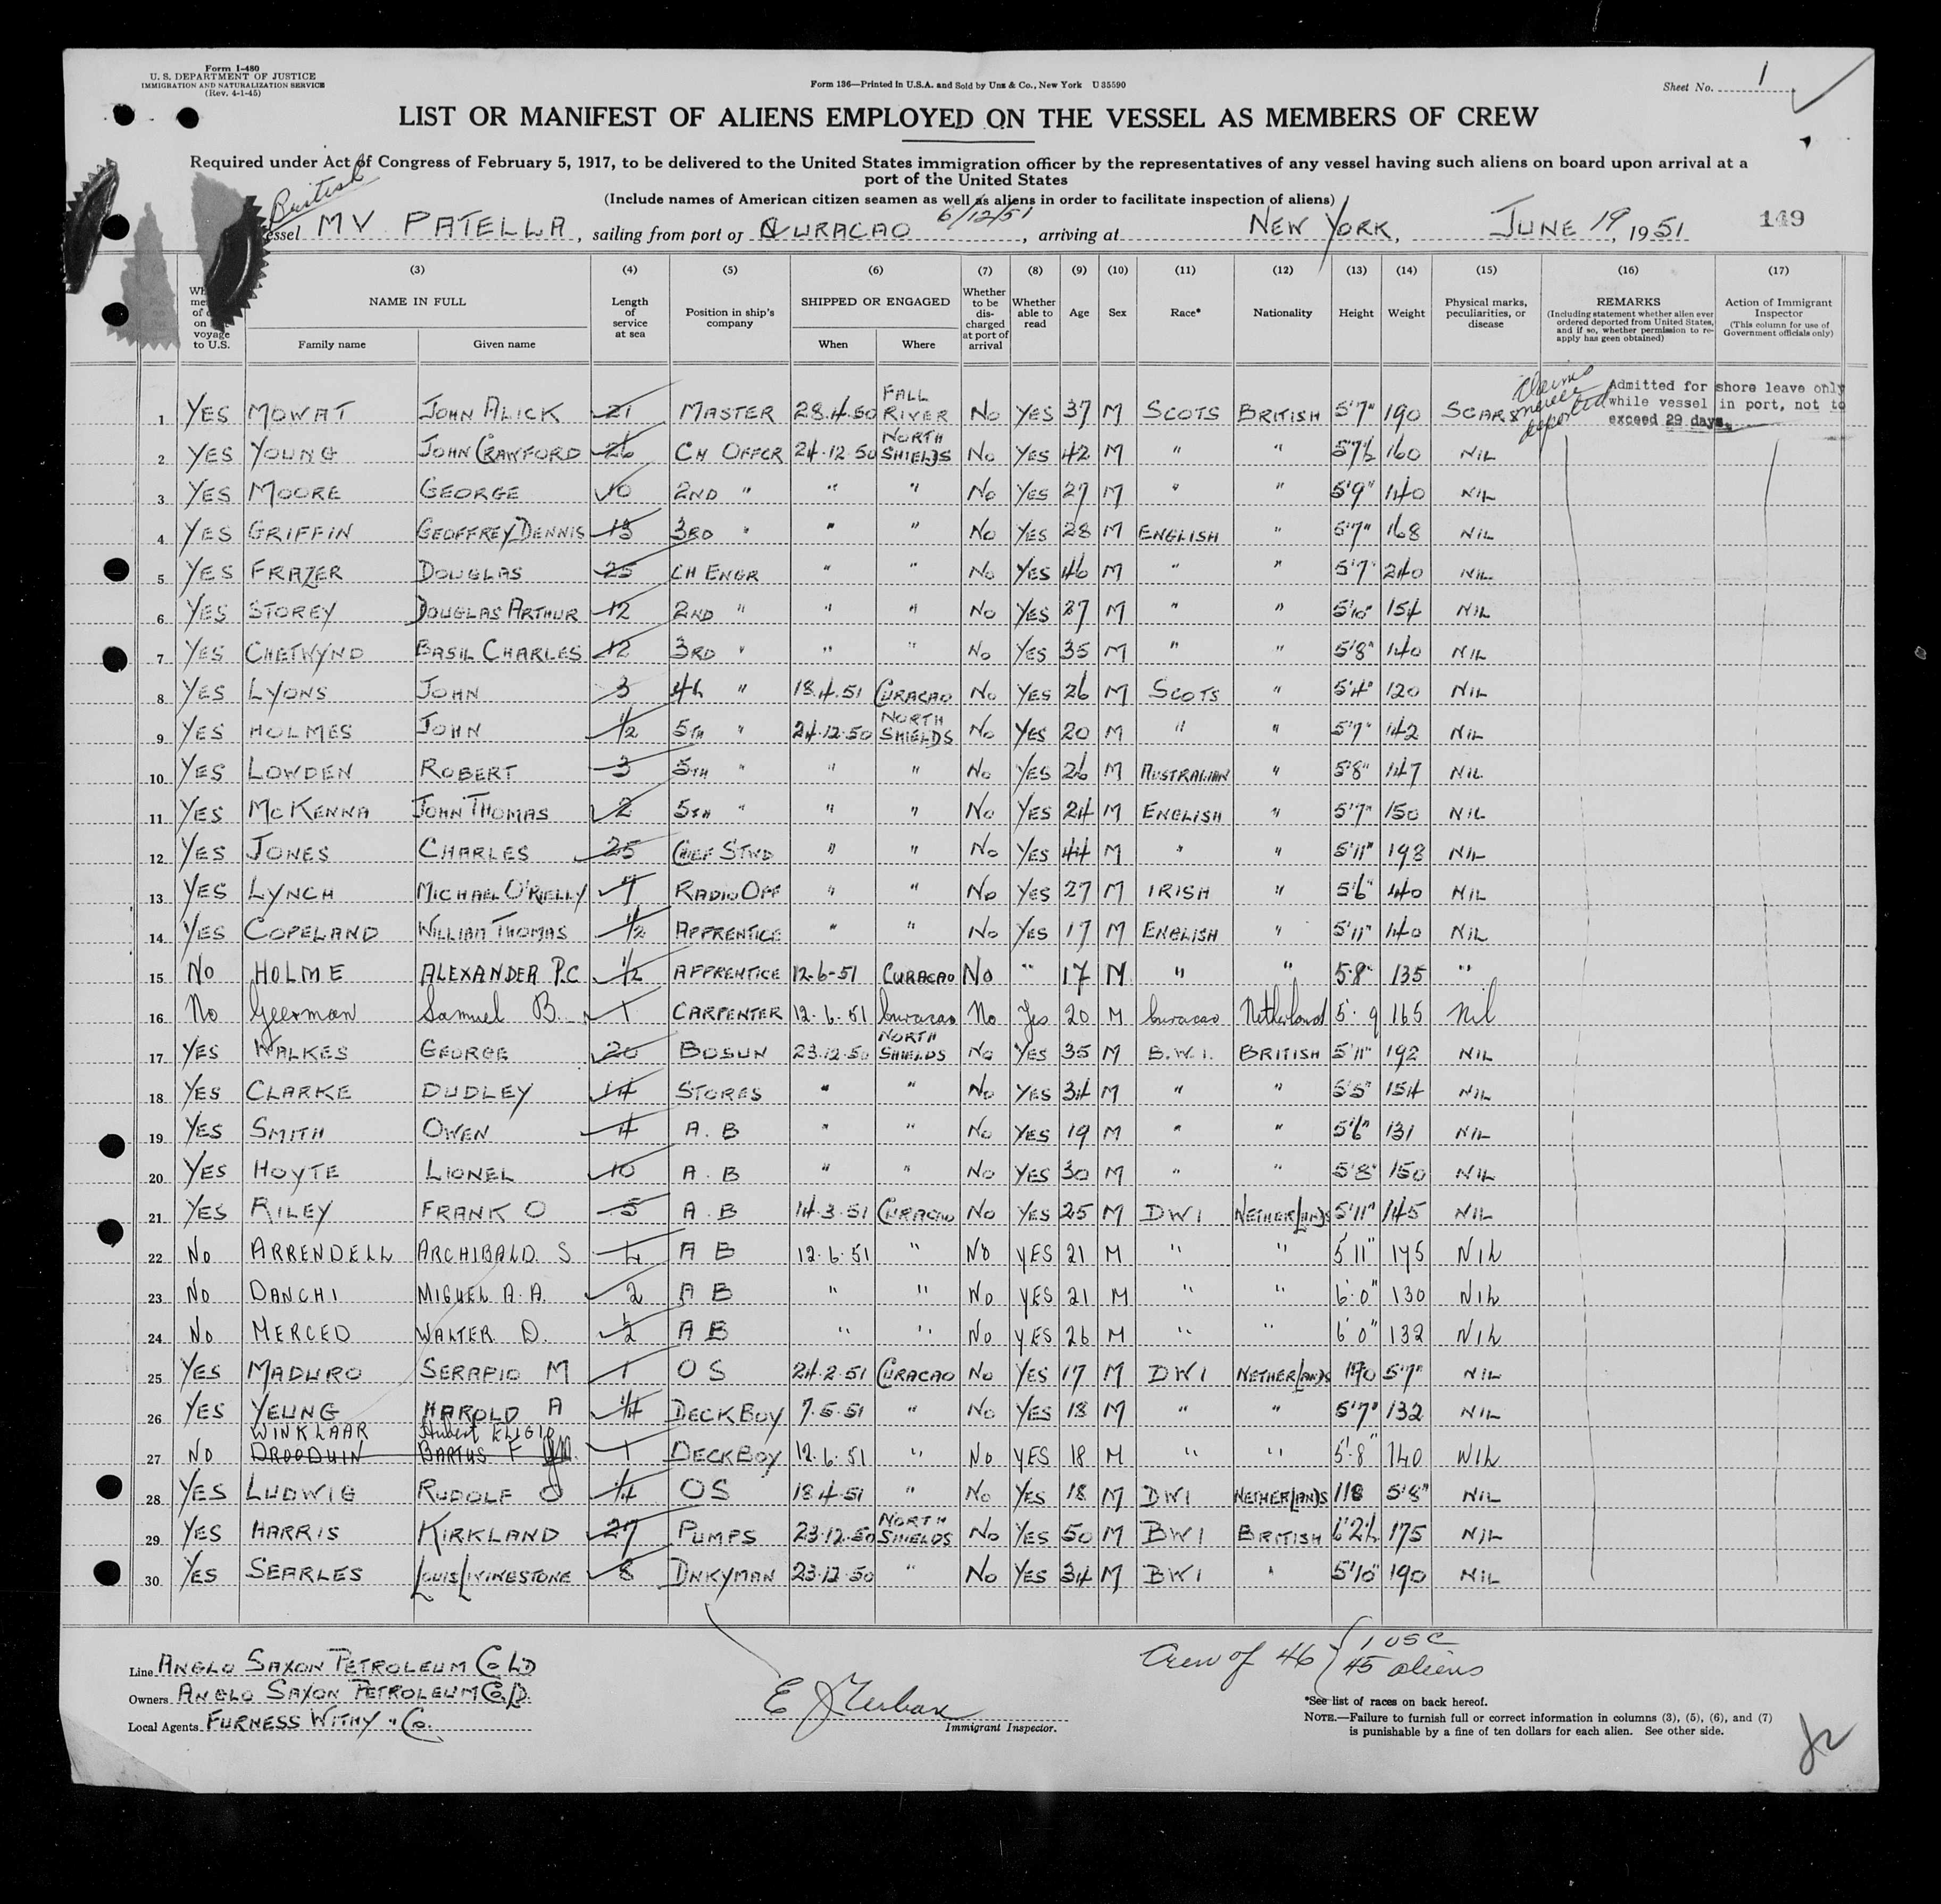 Form I-480
U. S. DEPARTMENT OF JUSTICE
IMMIGRATION AND NATURALIZATION SERVICE
(Rev. 4-1-45)
Form 136—Printed in U.S.A. and Sold by Unz & Co., New York U 35590
Sheet No. 1
LIST OR MANIFEST OF ALIENS EMPLOYED ON THE VESSEL AS MEMBERS OF CREW
Required under Act of Congress of February 5, 1917, to be delivered to the United States immigration officer by the representatives of any vessel having such aliens on board upon arrival at a
port of the United States
(Include names of American citizen seamen as well as aliens in order to facilitate inspection of aliens)
British 6/12/51
essel MV PATELLA, sailing from port of CURACAO, arriving at NEW YORK, JUNE 19, 1951 149
(3) (4) (5) (6) (7) (8) (9) (10) (11) (12) (13) (14) (15) (16) (17)
voyage to U.S. NAME IN FULL Family name Given name Length of service at sea Position in ship's company SHIPPED OR ENGAGED When Where Whether to be discharged at port of arrival Whether able to read Age Sex Race* Nationality Height Weight Physical marks, peculiarities, or disease REMARKS (Including statement whether alien ever ordered deported from United States, and if so, whether permission to re-apply has geen obtained) Action of Immigrant Inspector (This column for use of Government officials only)
Claims never deported
Admitted for shore leave only
while vessel in port, not to
exceed 29 days.
1 YES MOWAT JOHN ALICK 21 MASTER 28.4.50 FALL RIVER NO YES 37 M SCOTS BRITISH 5'7" 190 SCARS
2 YES YOUNG JOHN CRAWFORD 26 CH OFFCR 24.12.50 NORTH SHIELDS NO YES 42 M " " 5'7½ 160 NIL
3 YES MOORE GEORGE 10 2ND " " " NO YES 27 M " " 5'9" 140 NIL
4 YES GRIFFIN GEOFFREY DENNIS 13 3RD " " " NO YES 28 M ENGLISH " 5'7" 168 NIL
5 YES FRAZER DOUGLAS 25 CH ENGR " " NO YES 46 M " " 5'7" 240 NIL
6 YES STOREY DOUGLAS ARTHUR 12 2ND " " " NO YES 37 M " " 5'10" 154 NIL
7 YES CHETWYND BASIL CHARLES 12 3RD " " " NO YES 35 M " " 5'8" 140 NIL
8 YES LYONS JOHN 3 4th " 18.4.51 CURACAO NO YES 26 M SCOTS " 5'4" 120 NIL
9 YES HOLMES JOHN ½ 5TH " 24.12.50 NORTH SHIELDS NO YES 20 M " " 5'7" 142 NIL
10 YES LOWDEN ROBERT 3 5TH " " " NO YES 26 M AUSTRALIAN " 5'8" 147 NIL
11 YES McKENNA JOHN THOMAS 2 5TH " " " NO YES 24 M ENGLISH " 5'7" 150 NIL
12 YES JONES CHARLES 25 CHIEF STWD " " NO YES 44 M " " 5'11" 198 NIL
13 YES LYNCH MICHAEL O'RIELLY 7 RADIO OFF " " NO YES 27 M IRISH " 5'6" 140 NIL
14 YES COPELAND WILLIAM THOMAS 1½ APPRENTICE " " NO YES 17 M ENGLISH " 5'11" 140 NIL
15 NO HOLME ALEXANDER P.C ½ APPRENTICE 12-6-51 CURACAO NO " 17 M " " 5.8" 135 "
16 No Geerman Samuel B. 1 CARPENTER 12.6.51 Curacao No Yes 20 M Curacao Netherland 5.9 165 Nil
17 YES WALKES GEORGE 20 BOSUN 23.12.50 NORTH SHIELDS NO YES 35 M B.W.I. BRITISH 5'11" 192 NIL
18 YES CLARKE DUDLEY 14 STORES " " NO YES 34 M " " 5'5" 154 NIL
19 YES SMITH OWEN 4 A.B " " NO YES 19 M " " 5'6" 131 NIL
20 YES HOYTE LIONEL 10 A.B " " NO YES 30 M " " 5'8" 150 NIL
21 YES RILEY FRANK O 5 A.B 14.3.51 CURACAO NO YES 25 M DWI NETHERLANDS 5'11" 145 NIL
22 NO ARRENDELL ARCHIBALD. S 4 AB 12.6.51 " NO YES 21 M " " 5'11" 175 NIL
23 NO DANCHI MIGUEL A.A. 2 AB " " NO YES 21 M " " 6'.0" 130 NIL
24 NO MERCED WALTER D. ½ AB " " NO YES 26 M " " 6'0" 132 NIL
25 YES MADURO SERAPIO M 1 OS 24.2.51 CURACAO NO YES 17 M DWI NETHERLANDS 170 5'7" NIL
26 YES YEUNG HAROLD A ¼ DECK BOY 7.5.51 " NO YES 18 M " " 5'7" 132 NIL
WINKLAAR Hubert ELIGIO
27 NO DROODUIN BARTUS F 1 DECKBOY 12.6.51 " NO YES 18 M " " 5'.8" 140 NIL
28 YES LUDWIG RUDOLF O ¼ OS 18.4.51 " NO YES 18 M DWI NETHERLANDS 118 5'8" NIL
29 YES HARRIS KIRKLAND 27 PUMPS 23.12.50 NORTH SHIELDS NO YES 50 M BWI BRITISH 6'2½ 175 NIL
30 YES SEARLES LOUIS LIVINESTONE 8 DNKYMAN 23.12.50 " NO YES 34 M BWI " 5'10" 190 NIL
Line ANGLO SAXON PETROLEUM Co LD
Owners ANGLO SAXON PETROLEUM Co. LD.
Local Agents FURNESS WITHY & Co.
Immigrant Inspector.
Crew of 46 { 1 USC
45 aliens
*See list of races on back hereof.
NOTE.—Failure to furnish full or correct information in columns (3), (5), (6), and (7)
is punishable by a fine of ten dollars for each alien. See other side.